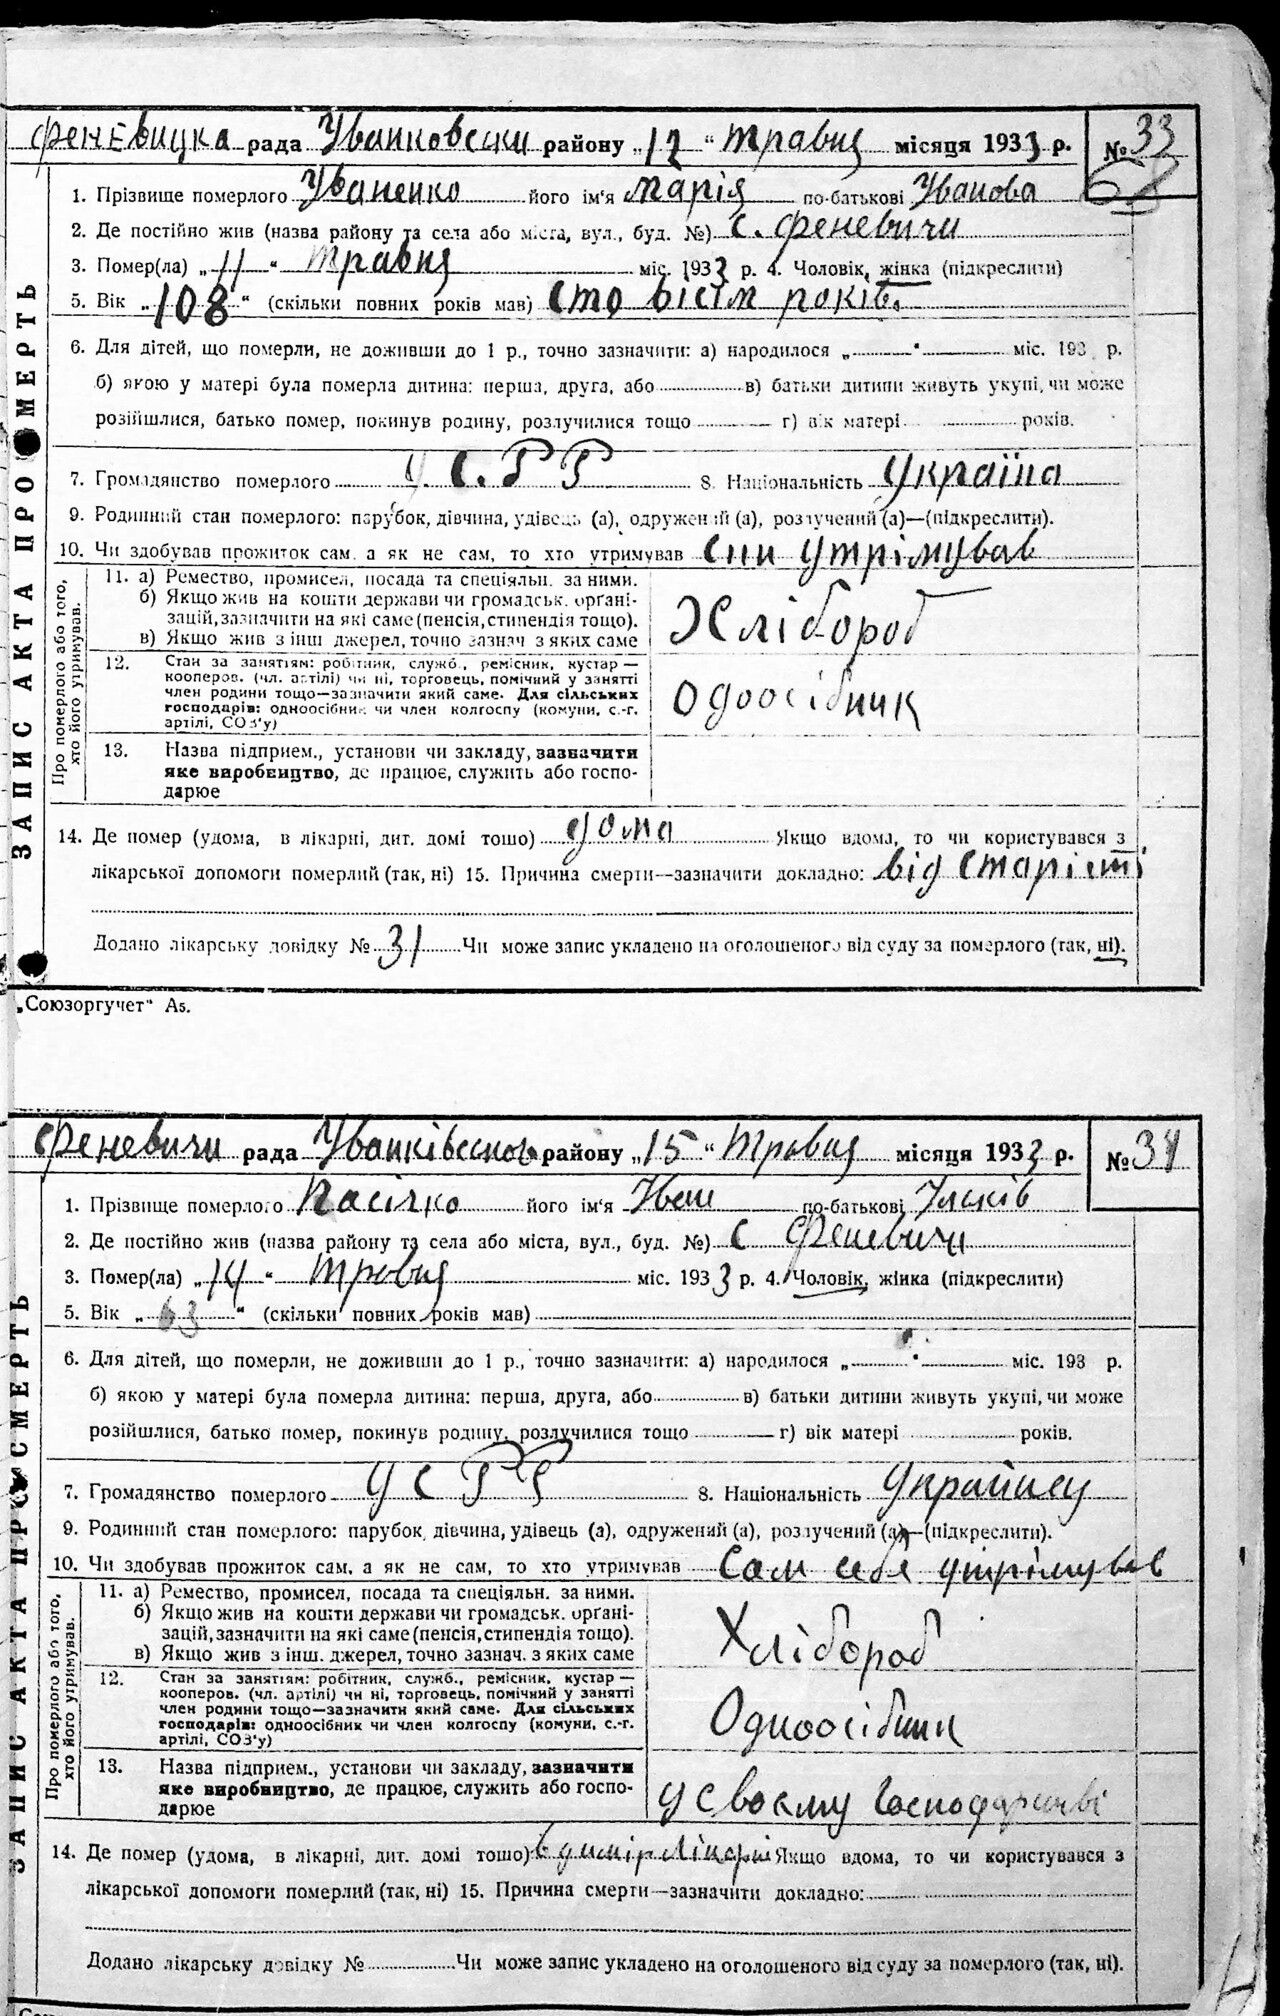 Феневицка рада Уванковски району „12“ травня місяця 1933 р. № 33
1. Прізвище померлого Уваненко його ім'я марія по-батькові Уванова
2. Де постійно жив (назва району та села або міста, вул., буд. №) с. феневичи
3. Помер(ла) „11“ травня міс. 1933 р. 4. Чоловік, жінка (підкреслити)
5. Вік „108“ (скільки повних років мав) сто вісім років.
6. Для дітей, що померли, не доживши до 1 р., точно зазначити: а) народилося „ “ міс. 193 р.
б) якою у матері була померла дитина: перша, друга, або в) батьки дитини живуть укупі, чи може
розійшлися, батько помер, покинув родину, розлучилися тощо г) вік матері років.
7. Громадянство померлого У.С.Р.Р 8. Національність Україна
9. Родинний стан померлого: парубок, дівчина, удівець (а), одружений (а), розлучений (а)—(підкреслити).
10. Чи здобував прожиток сам, а як не сам, то хто утримував син утрімував
ЗАПИС АКТА ПРО СМЕРТЬ
Про померлого або того, хто його утримував.
11. а) Ремество, промисел, посада та спеціяльн. за ними.
б) Якщо жив на кошти держави чи громадськ. органі-
зацій, зазначити на які саме (пенсія, стипендія тощо).
в) Якщо жив з інш джерел, точно зазнач з яких саме
Хлібороб
12. Стан за занятіям: робітник, служб., ремісник, кустар —
кооперов. (чл. артілі) чи ні, торговець, помічний у занятті
член родини тощо—зазначити який саме. Для сільських
господарів: одноосібник чи член колгоспу (комуни, с.-г.
артілі, СОЗ'у)
одоосібник
13. Назва підприєм., установи чи закладу, зазначити
яке виробництво, де працює, служить або госпо-
дарює
14. Де помер (удома, в лікарні, дит. домі тошо) удома Якщо вдома, то чи користувався з
лікарської допомоги померлий (так, ні) 15. Причина смерти—зазначити докладно: від старісті
Додано лікарську довідку № 31 Чи може запис укладено на оголошеного від суду за померлого (так, ні).
„Союзоргучет“ А5.
Феневичи рада району „15“ Травня місяця 1933 р. № 34
1. Прізвище померлого Пасічко його ім'я Иван по-батькові
2. Де постійно жив (назва району та села або міста, вул., буд. №) с Феневичи
3. Помер(ла) „14“ травня міс. 1933 р. 4. Чоловік, жінка (підкреслити)
5. Вік „63“ (скільки повних років мав)
6. Для дітей, що померли, не доживши до 1 р., точно зазначити: а) народилося „ “ міс. 193 р.
б) якою у матері була померла дитина: перша, друга, або в) батьки дитини живуть укупі, чи може
розійшлися, батько помер, покинув родину, розлучилися тощо г) вік матері років.
7. Громадянство померлого УСРР 8. Національність
9. Родинний стан померлого: парубок, дівчина, удівець (а), одружений (а), розлучений (а)—(підкреслити).
10. Чи здобував прожиток сам, а як не сам, то хто утримував Сам себе утрімував
ЗАПИС АКТА ПРО СМЕРТЬ
Про померлого або того, хто його утримував.
11. а) Ремество, промисел, посада та спеціяльн. за ними.
б) Якщо жив на кошти держави чи громадськ. органі-
зацій, зазначити на які саме (пенсія, стипендія тощо).
в) Якщо жив з інш. джерел, точно зазнач. з яких саме
Хлібороб
12. Стан за занятіям: робітник, служб., ремісник, кустар —
кооперов. (чл. артілі) чи ні, торговець, помічний у занятті
член родини тощо—зазначити який саме. Для сільських
господарів: одноосібник чи член колгоспу (комуни, с.-г.
артілі, СОЗ'у)
Одноосібник
13. Назва підприєм., установи чи закладу, зазначити
яке виробництво, де працює, служить або госпо-
дарює
У своєму господарстві
14. Де помер (удома, в лікарні, дит. домі тошо) Якщо вдома, то чи користувався з
лікарської допомоги померлий (так, ні) 15. Причина смерти—зазначити докладно:
Додано лікарську довідку № Чи може запис укладено на оголошеного від суду за померлого (так, ні).